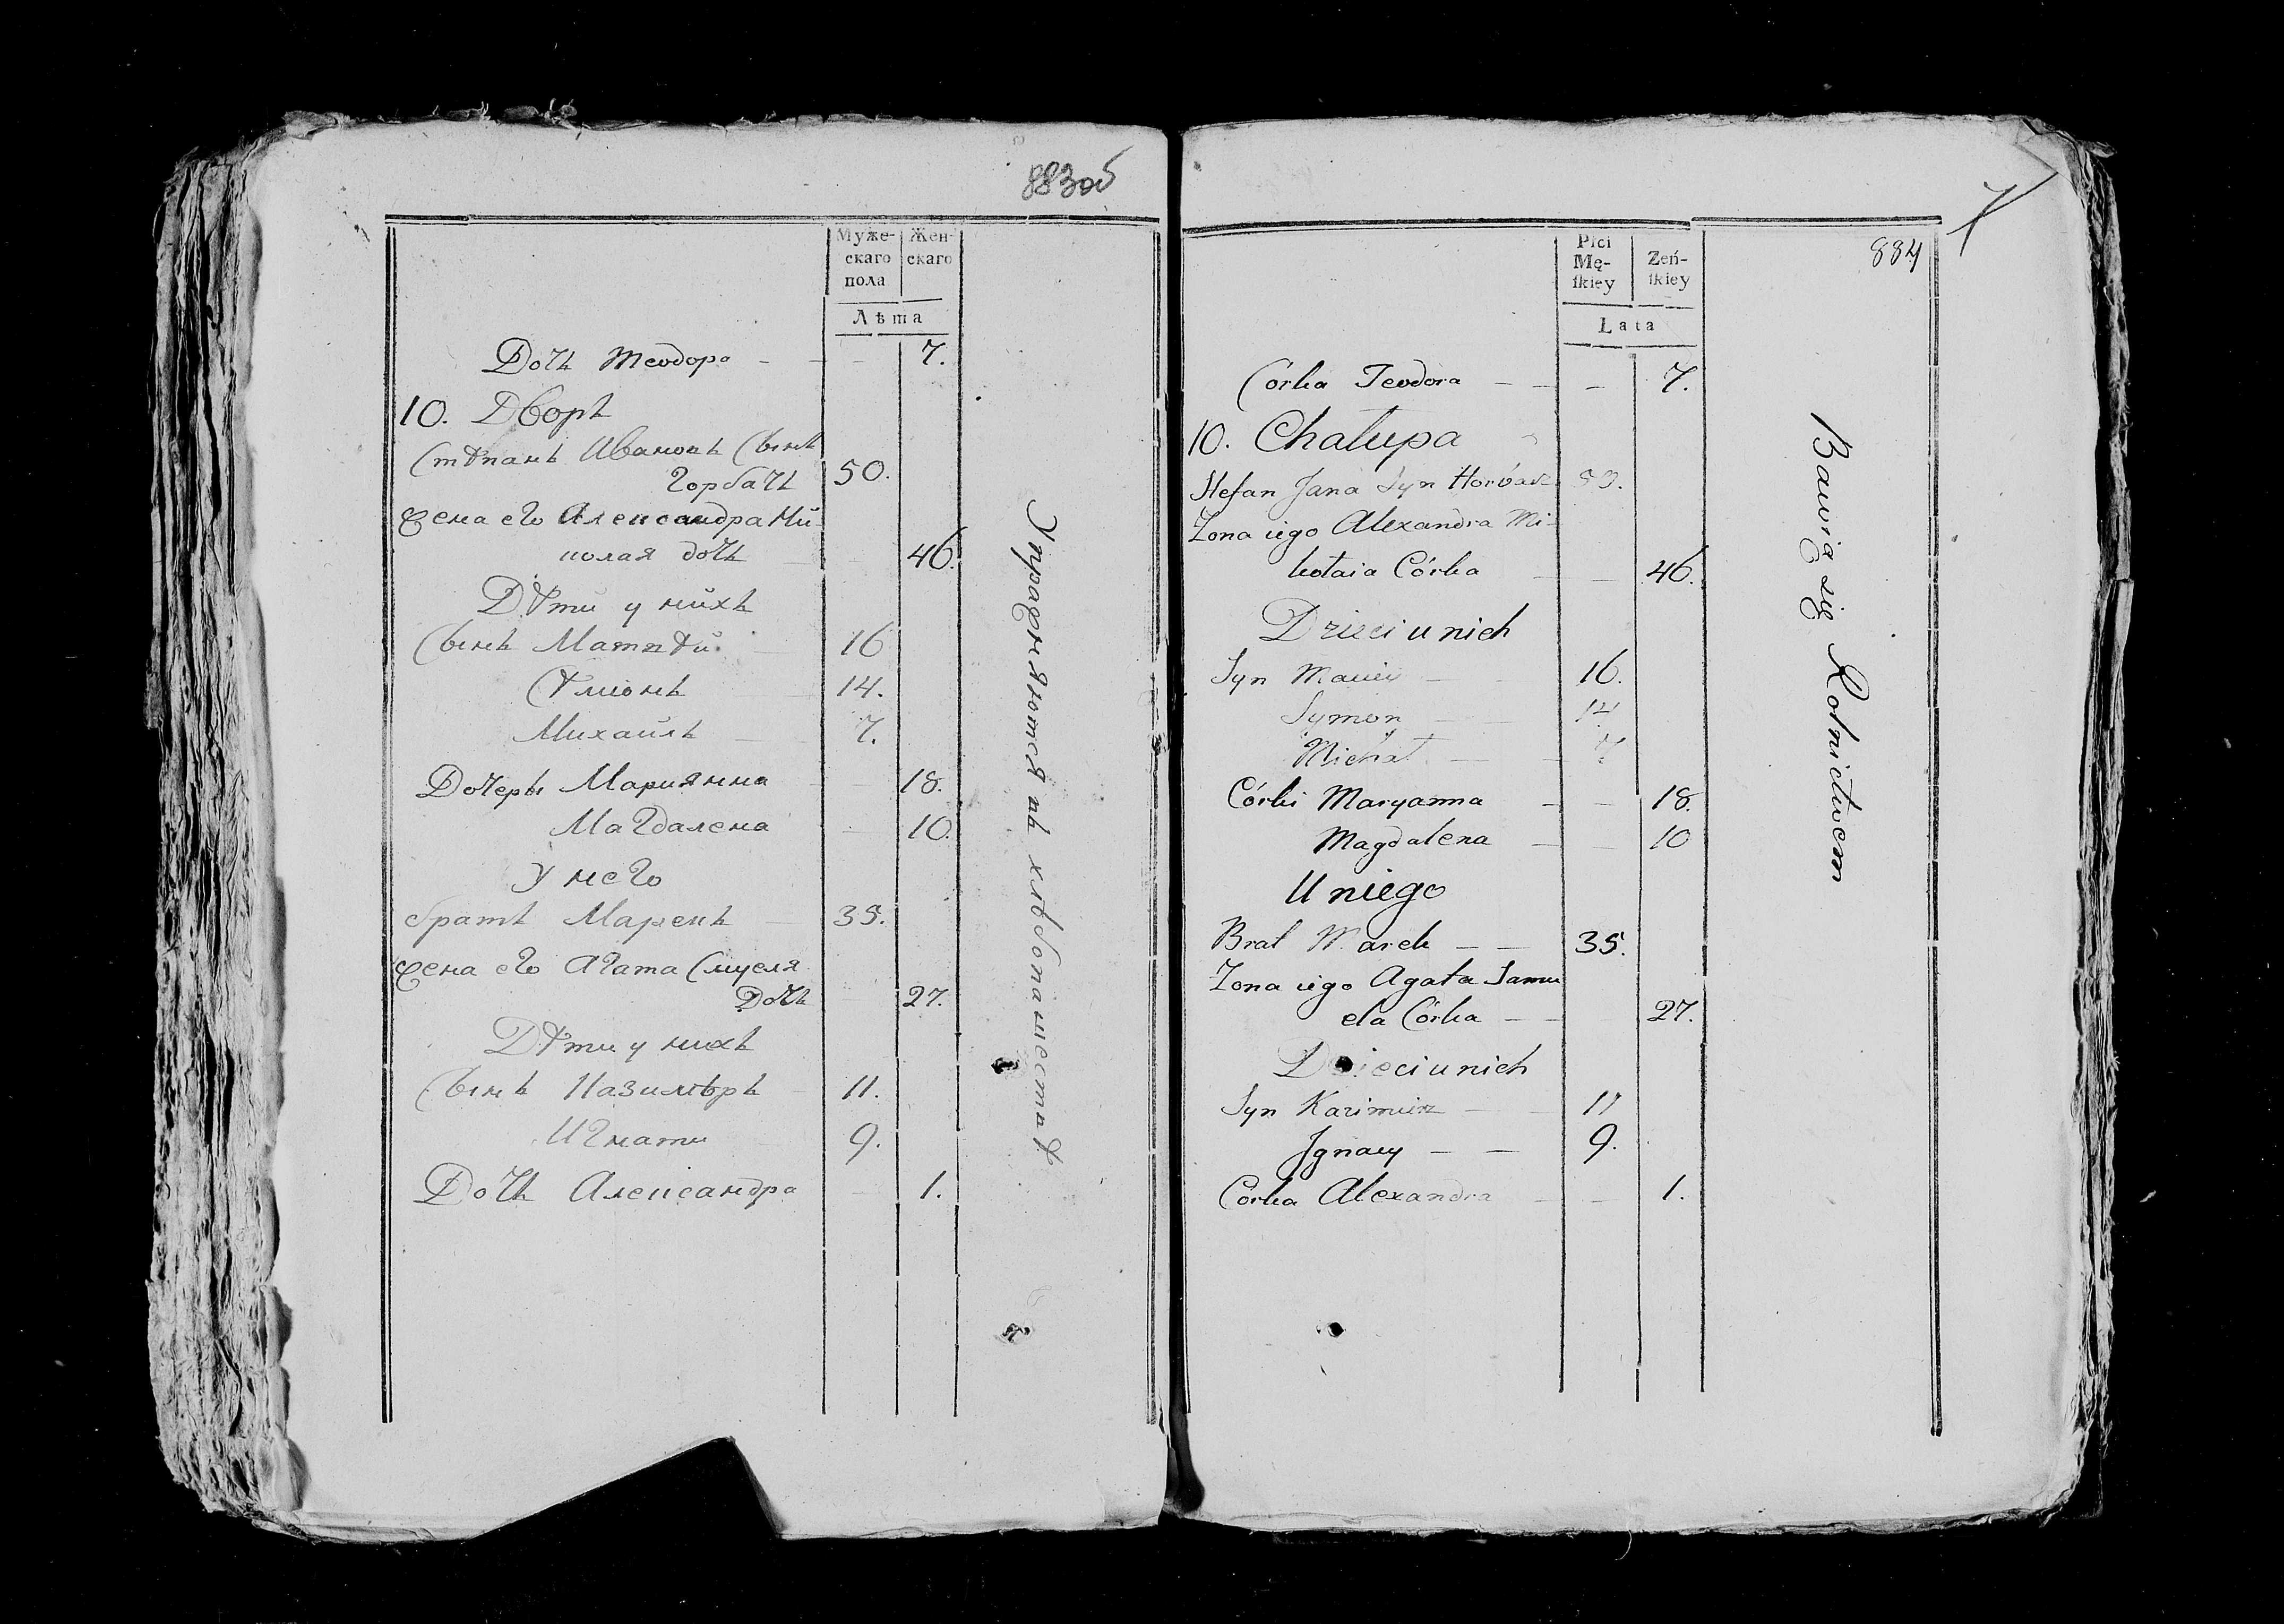 883об
Муже-
скаго
пола
Жен-
скаго
Лѣта
Дочь Теодора - - 7.
10. Дворъ
Стѣпанъ Ивановъ Сынъ
Горбачъ 50.
Жена его Александра Ми-
колая дочь 46.
Дѣти у нихъ
Сынъ Матвѣй 16
Сѣмюнъ 14.
Михаилъ 7.
Дочеры Марианна 18.
Магдалена 10.
У него
братъ Марекъ 35.
Жена его Агата Смуеля
Дочь 27.
Дѣти у нихъ
Сынъ Казимѣръ 11.
Игнати 9.
Дочь Александра 1.
Упражняются въ хлѣбопашествѣ
884
Płci
Mę-
ſkiey
Zeń-
ſkiey
Lata
Córka Teodora - - - 7.
10. Chałupa
Stefan Jana Syn Horbacz 50.
Zona iego Alexandra Mi-
kołaia Córka - - 46.
Dzieci u nich
Syn Maciey - - 16.
Symon - - 14
Michał - - 7
Córki Maryanna - - 18.
Magdalena - - 10
U niego
Brat Marek - - 35.
Zona iego Agata Samu
ela Córka - - 27.
Dzieci u nich
Syn Kazimierz - 11
Jgnacy - - 9.
Corka Alexandra - - 1.
Bawią się Rolnictwem